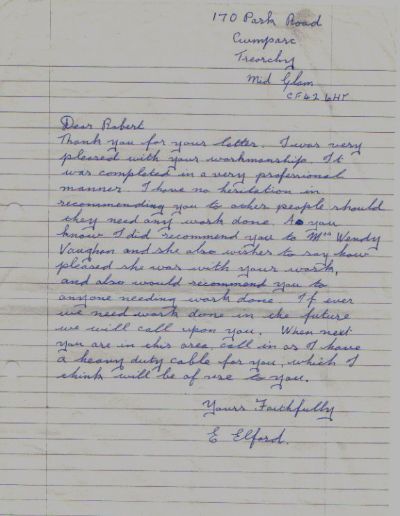 170 Park Road
Cwmparc
Treorchy
Mid Glam
CF42 6HT
Dear Robert
Thank you for your letter. I was very
pleased with your workmanship. It
was completed in a very professional
manner. I have no hesitation in
recommending you to other people should
they need any work done. As you
know I did recommend you to Mrs Wendy
Vaughan and she also wishes to say how
pleased she was with your work,
and also would recommend you to
anyone needing work done. If ever
we need work done in the future
we will call upon you. When next
you are in this area, call in as I have
a heavy duty cable for you, which I
think will be of use to you.
Yours Faithfully
E Elford.